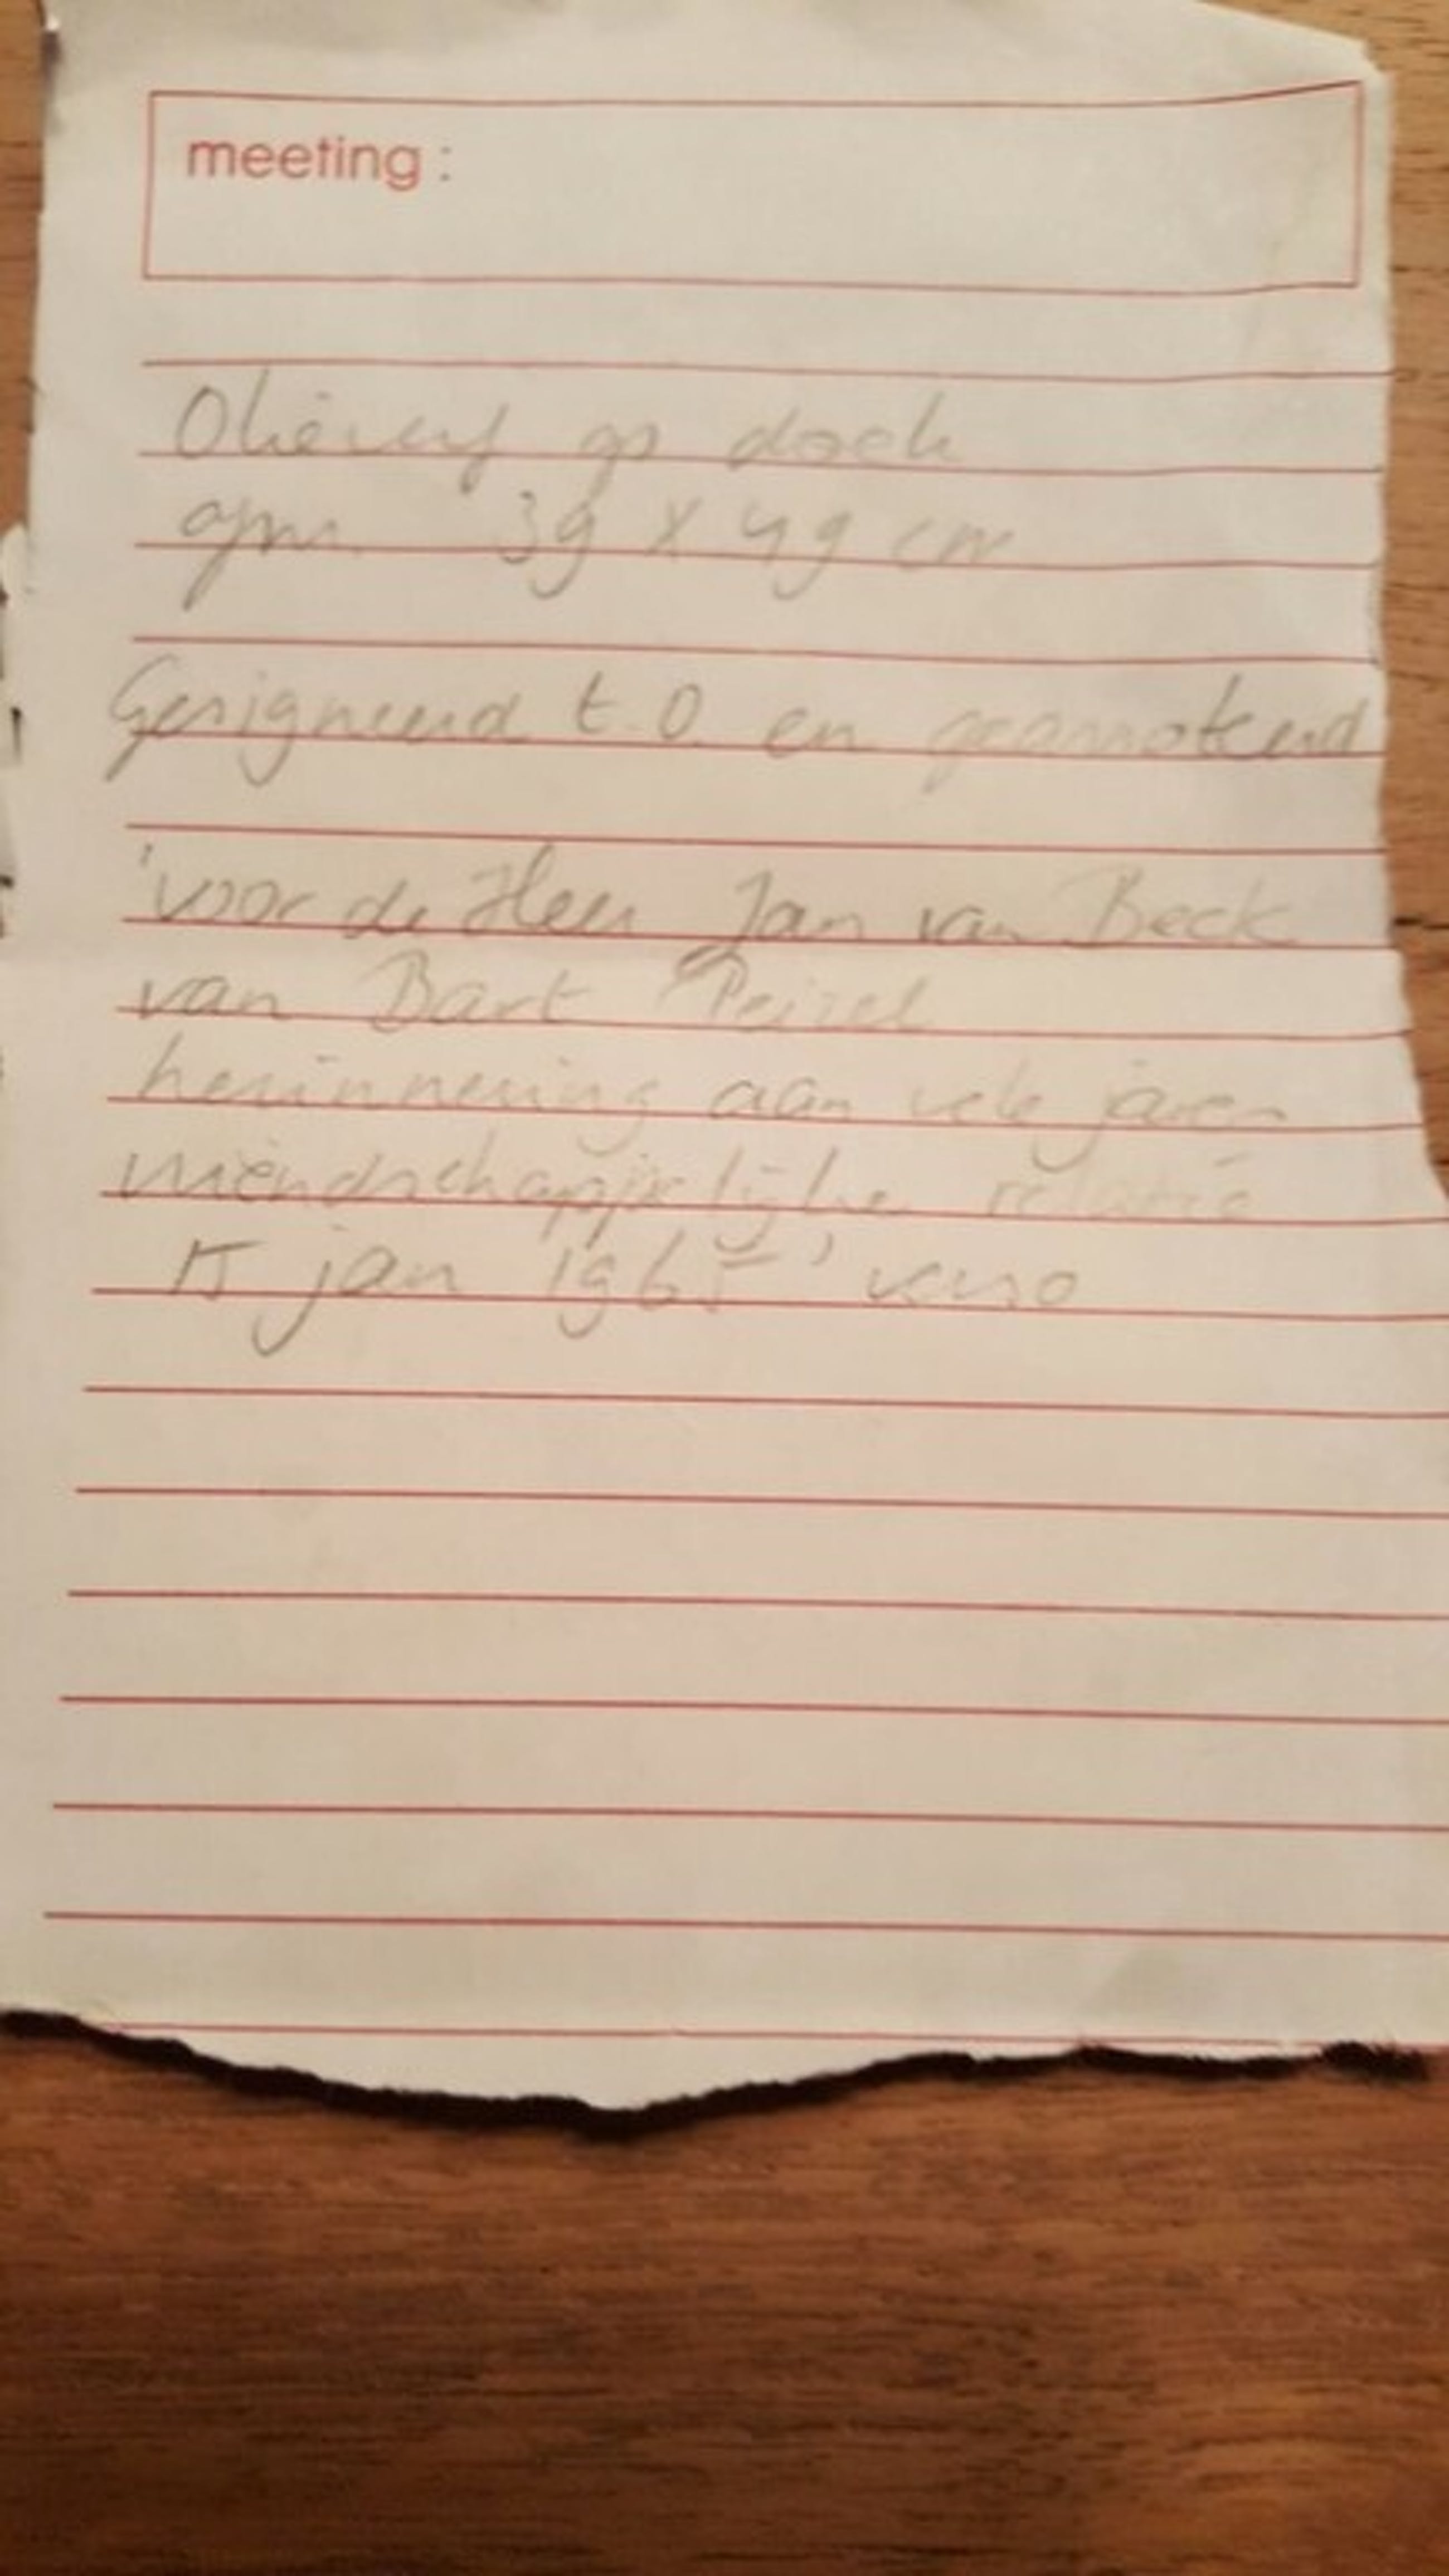 meeting :
Olieverf op doek
afm. 39 x 49 cm
Gesigneerd t.o. en geannoteerd
'voor de Heer Jan van Beek
van Bart Peizel
herinnering aan vele jaren
vriendschappelijke relatie
15 jan 1965' verso